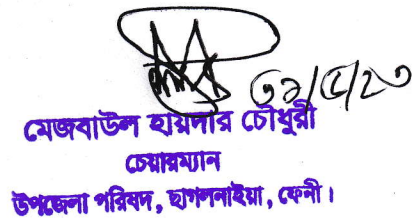 ৩১/৫/২৩
মেজবাউল হায়দার চৌধুরী
চেয়ারম্যান
উপজেলা পরিষদ, ছাগলনাইয়া, ফেনী।